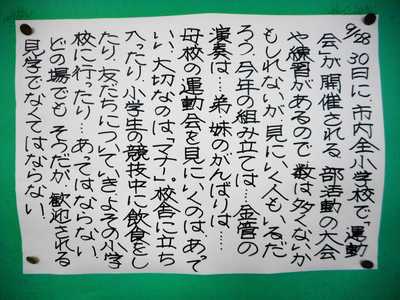 9/28 30日に、市内全小学校で「運動
会」が開催される。部活動の大会
や練習があるので、数は多くないか
もしれないが、見にいく人もいるだ
ろう。今年の組み立ては……金管の
演奏は……弟・妹のがんばりは……
母校の運動会を見にいくのは、あって
いい。大切なのは「マナー」。校舎に立ち
入ったり、小学生の競技中に飲食をし
たり、友だちについていき、よその小学
校に行ったり…あってはならない。
どの場でもそうだが、歓迎される
見学でなくてはならない。